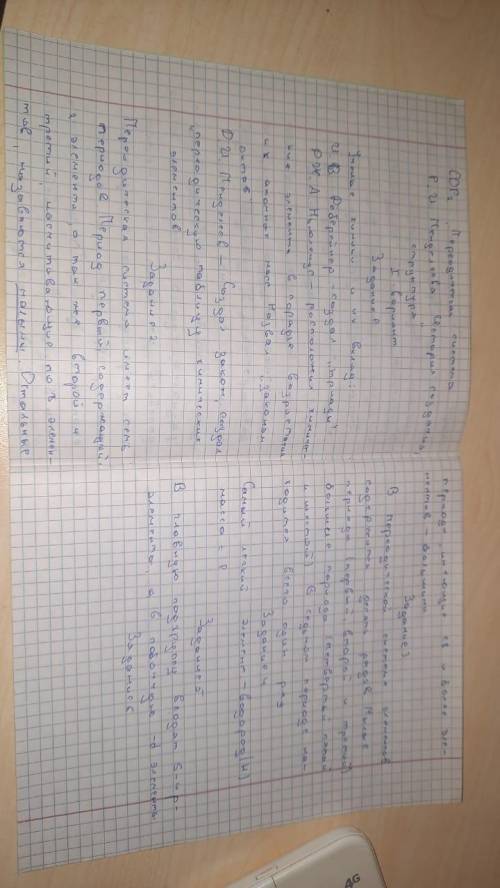 СОР: Периодическая система
Д. И. Менделеева. История создания,
структура
I вариант
Задание 1
Ученые химики и их вклад:
И. В. Деберейнер - создал „триады"
Дж. А. Ньюлендс - расположил химичес-
кие элементы в порядке возрастания
их атомных масс. Назвал „законом
октав
Д. И. Менделеев - Создал закон, создал
периодическую таблицу химических
элементов
Задание 2
Периодическая система имеет семь
периодов. Период первый, содержащий
2 элемента, а так же второй и
третий, насчитывающие по 8 элемен-
тов, называются малыми. Остальные
периоды имеющие 18 и более эле-
ментов - большими
Задание 3
В периодической системе элементов
содержится десять рядов. Малые
периоды (первый второй и третий)
большие периоды (четвертый пятый
и шестой) В седьмом периоде на-
ходится всего один ряд
Задание 4
Самый легкий элемент - водород (H)
масса =
Задание 5
В главную подгруппу входят s- и p-
элементы, а в побочную - d элементы
Задание 6
4G